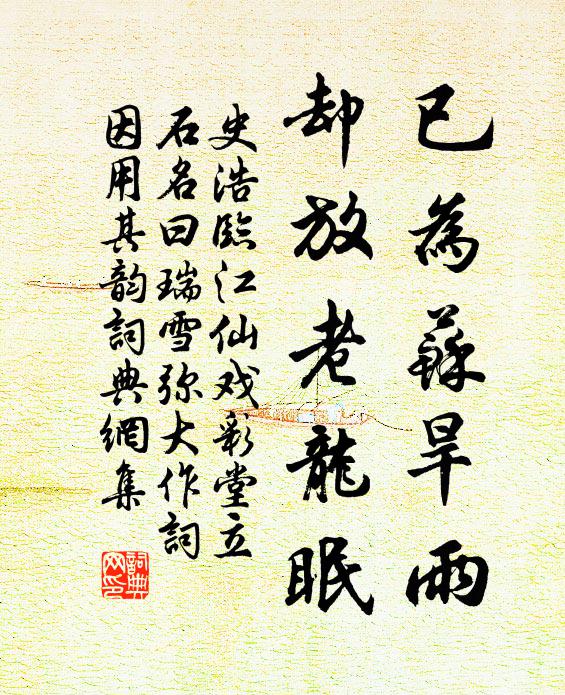 已為蘇旱雨
却放老龍眠
史浩臨江仙戏彩堂立
石名曰瑞雪弥大作詞
因用其韵詞典網集
詞典
网印